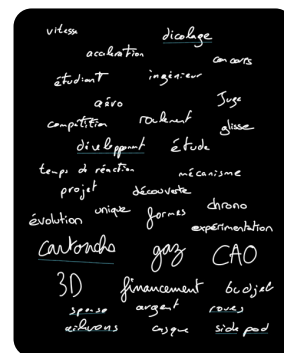 vitesse dicolage
accélération concours
étudiant ingénieur
aéro Juge
compétition roulement glisse
développment étude
temps de réaction mécanisme
projet découverte
évolution unique formes chrono
expérimentation
gaz CAO
3D financement budjet
argent roues
ailerons casque side pod